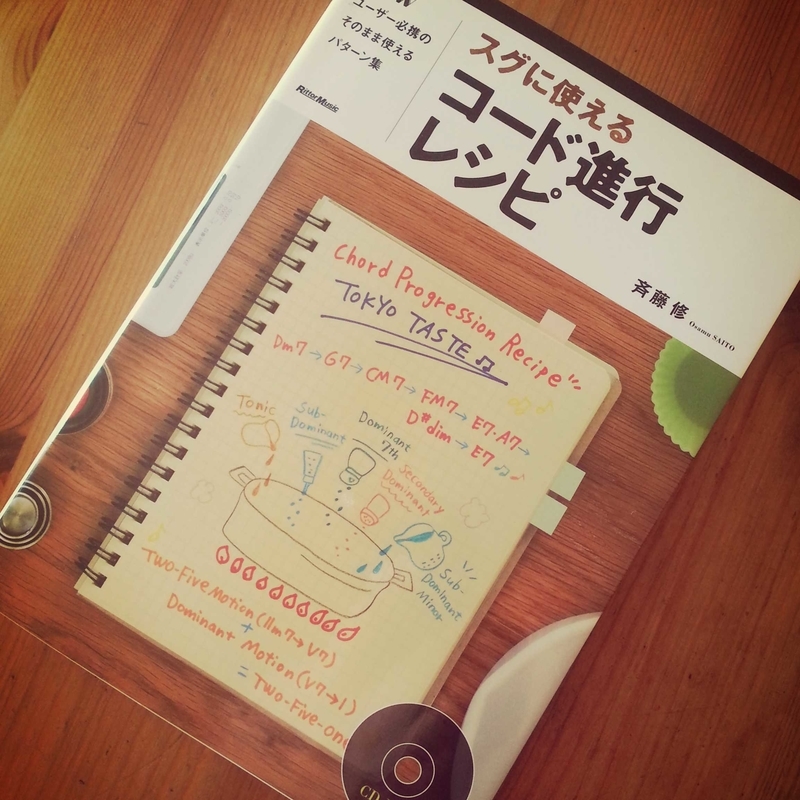 ユーザー必携の
そのまま使える
パターン集
Rittor Music
スグに使える
コード進行
レシピ
斉藤 修 Osamu SAITO
Chord Progression Recipe
TOKYO TASTE
Dm7→G7→CM7→FM7→E7・A7→
D#dim→E7
Tonic
Sub-
Dominant
Dominant
7th
Secondary
Dominant
Sub-
Dominant
Minor
Two-Five Motion (IIm7→V7)
+
Dominant Motion (V7→I)
= Two-Five-one
CD